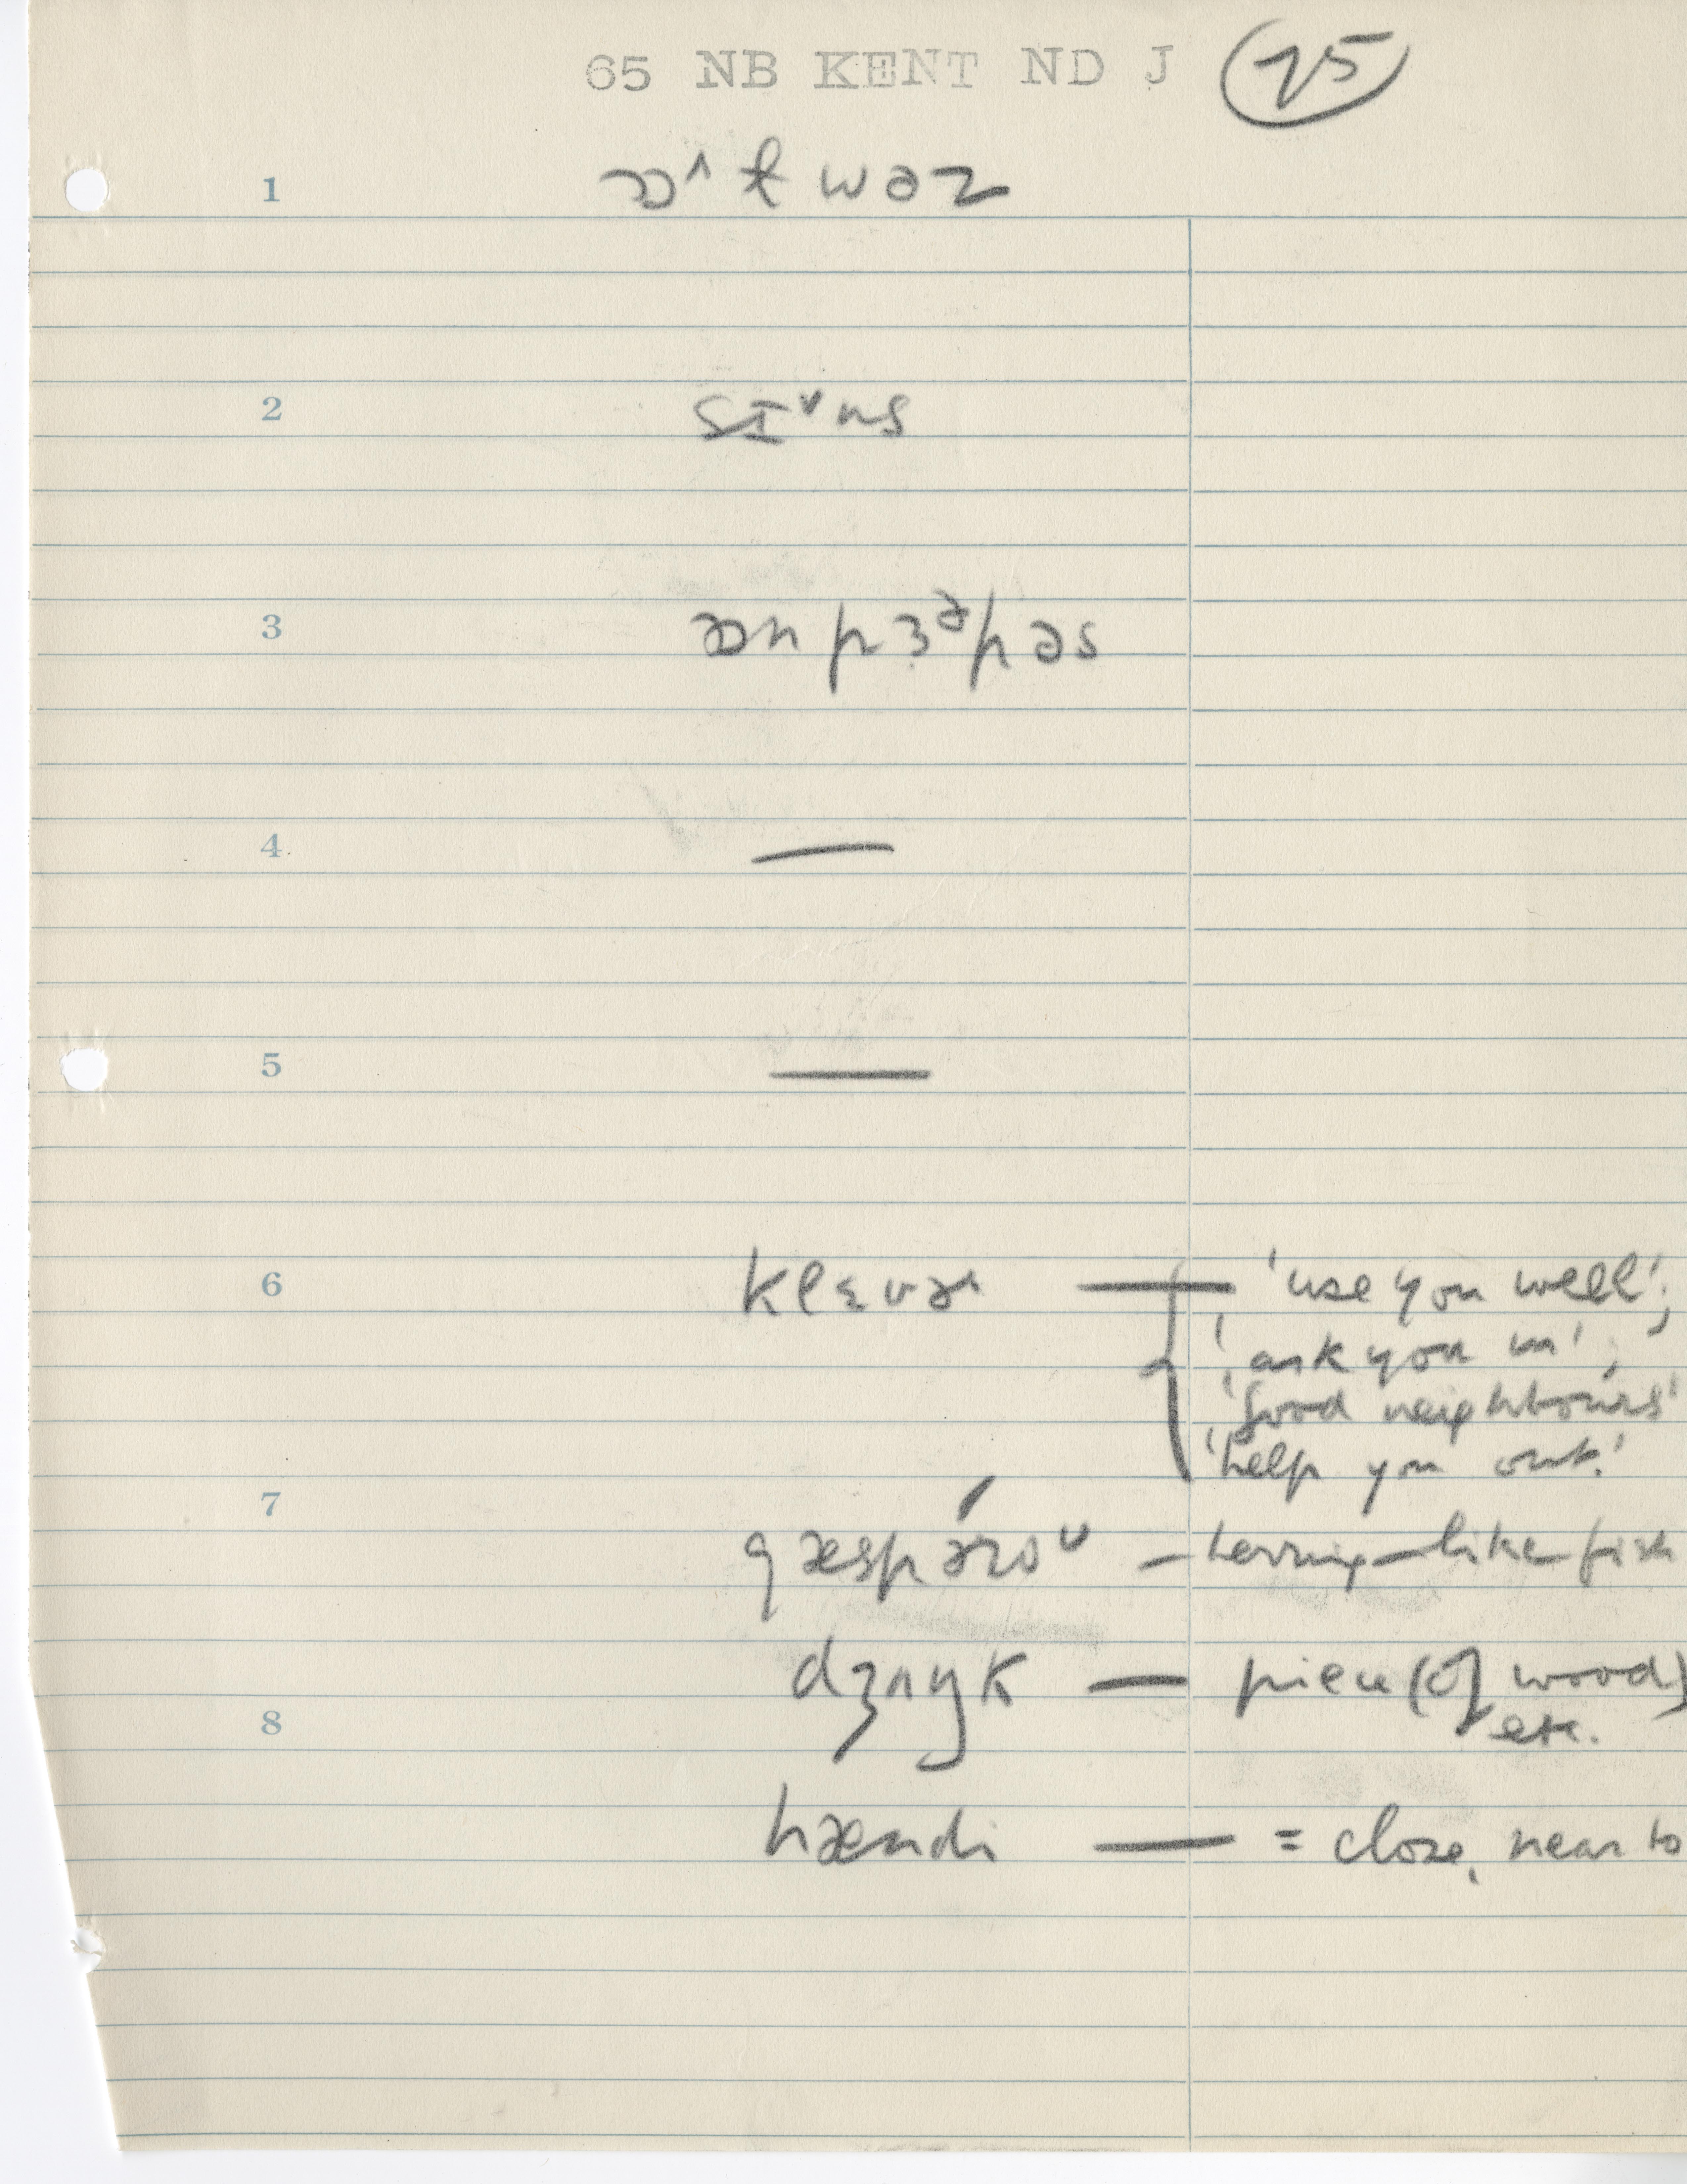 65 NB KENT ND J 25
1
2 sɪ˅ns
3 pɜᵊpəs
4 —
5 —
6 klɛvɚ — 'use you well';
'ask you in';
'good neighbours'
'help you out.'
7
gæspəro — herring-like fish
dʒʌŋk — piece (of wood)
etc.
8
hændi — = close, near to